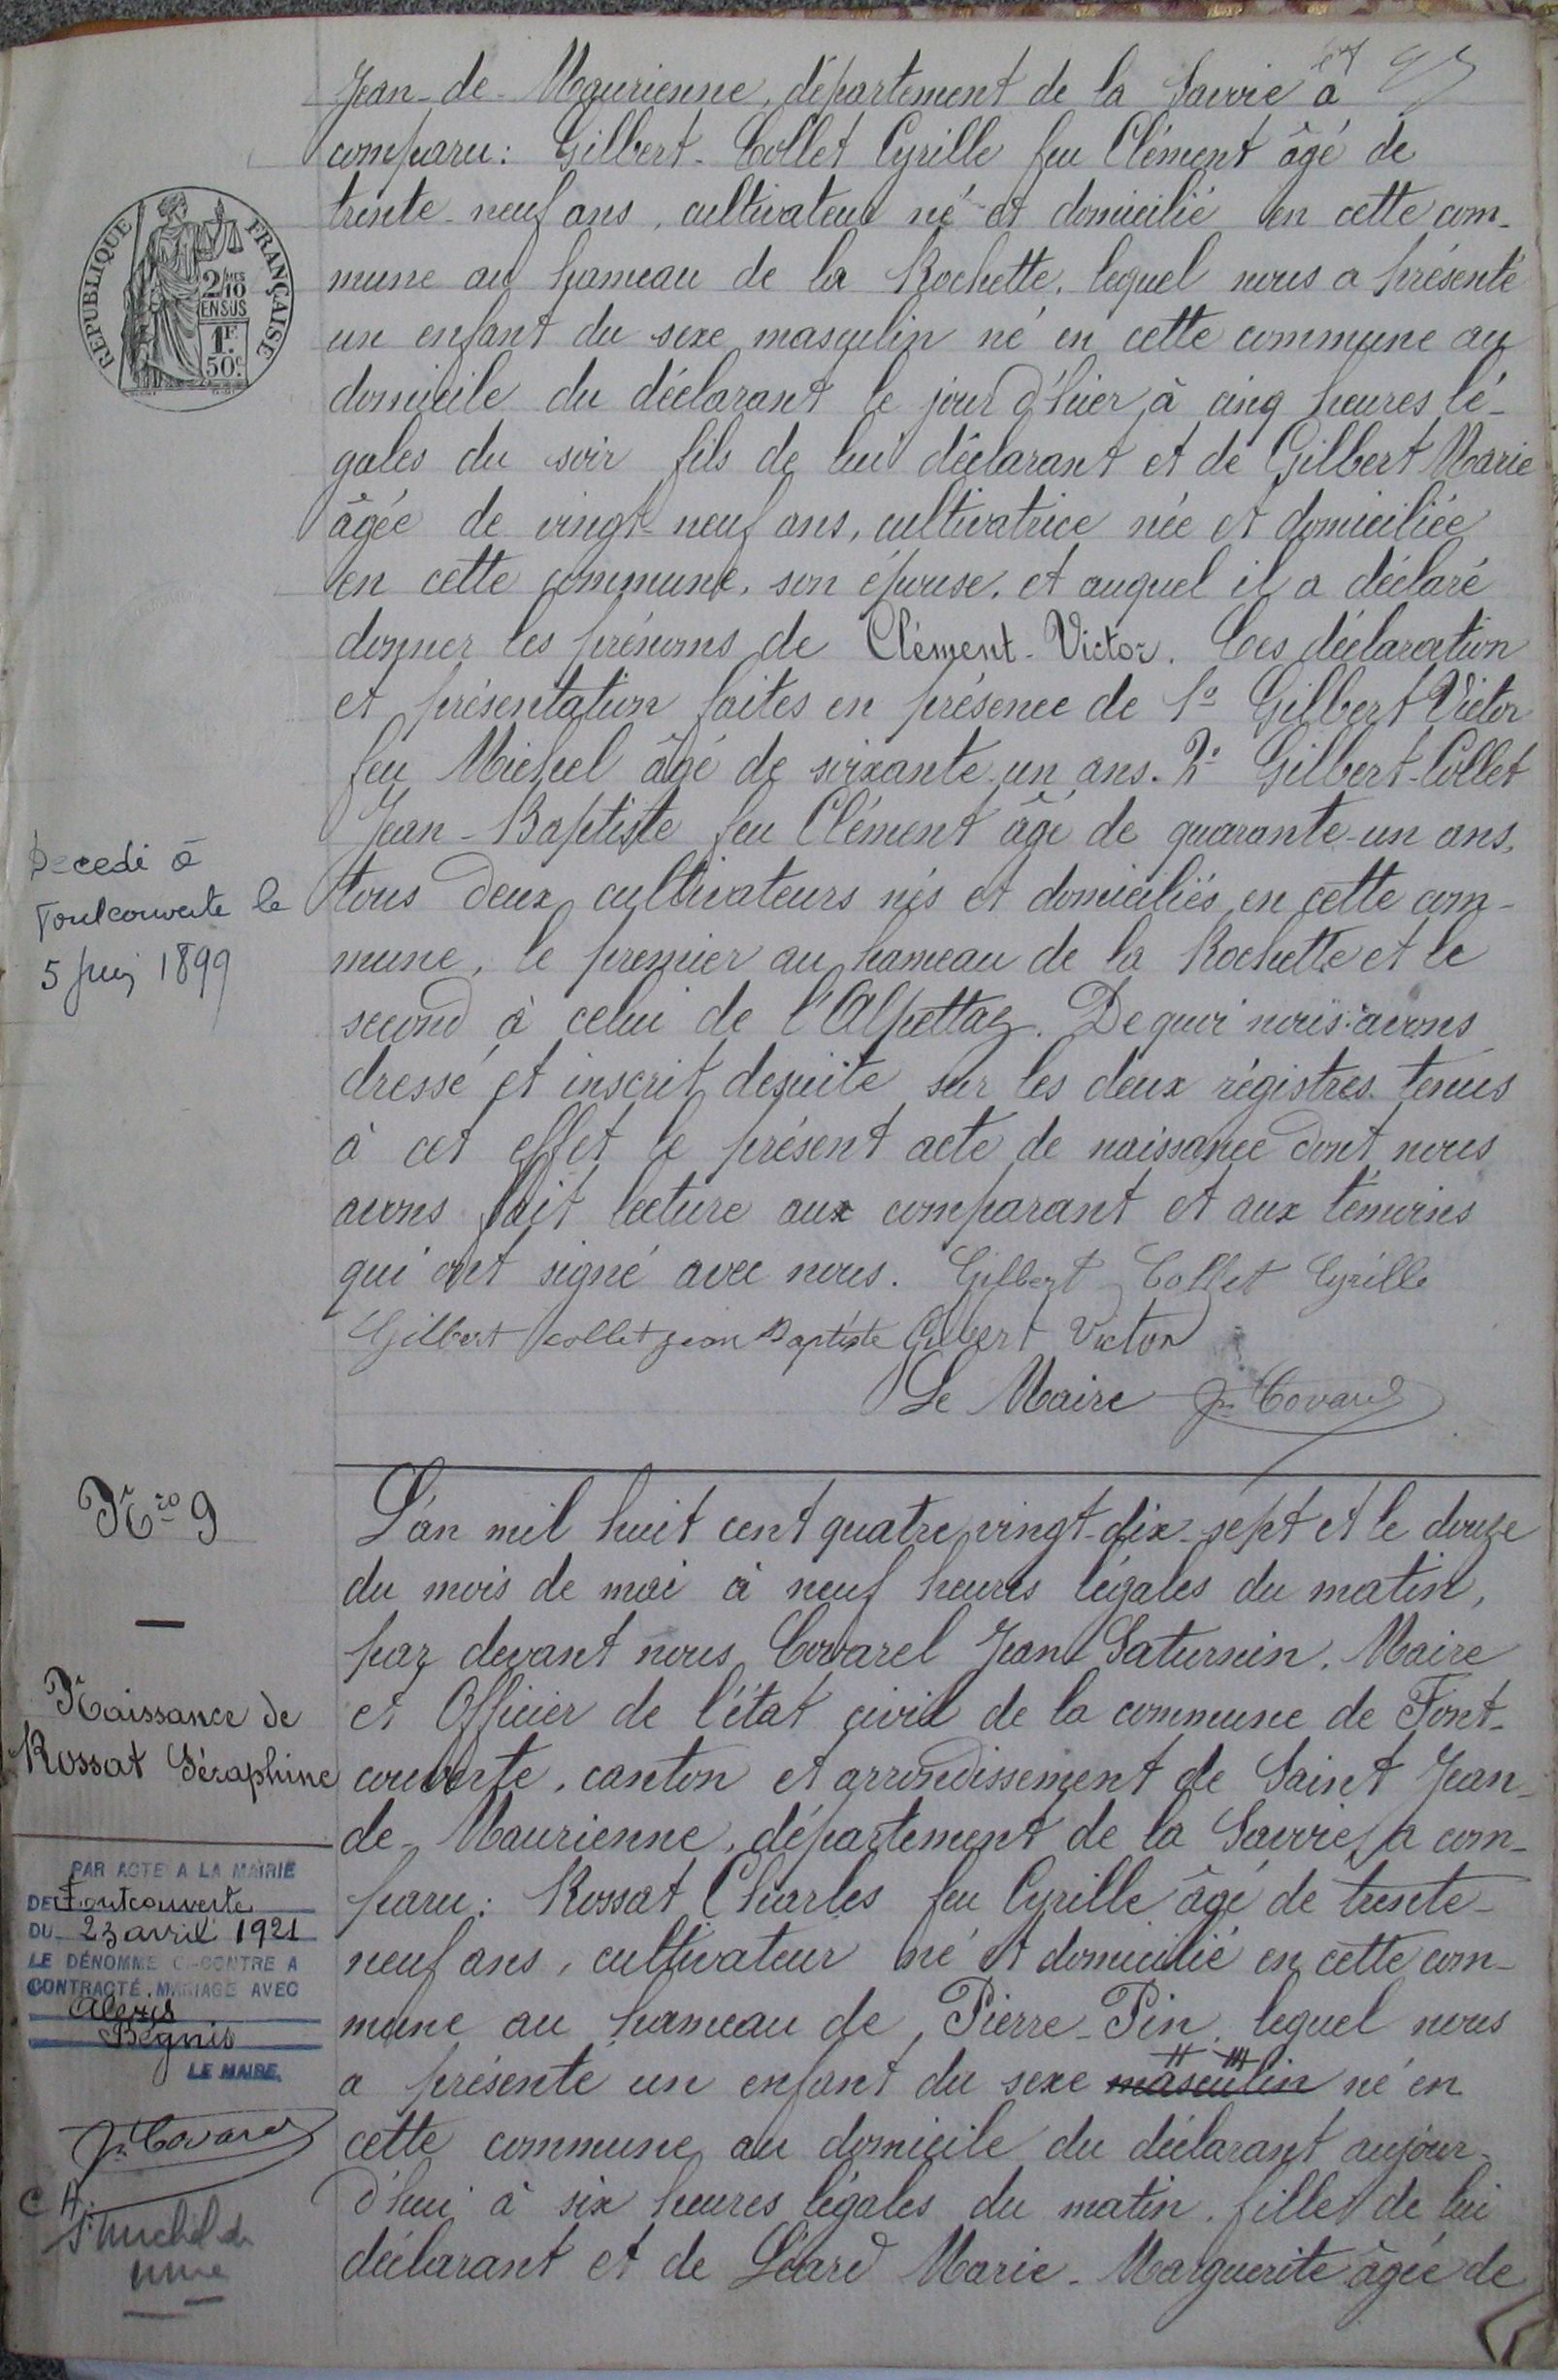 Jean-de-Maurienne, département de la Savoie a
comparu: Gilbert-Collet Cyrille feu Clément âgé de
trente-neuf ans, cultivateur né et domicilié en cette com-
mune au hameau de la Rochette, lequel nous a présenté
un enfant du sexe masculin né en cette commune au
domicile du déclarant le jour d'hier à cinq heures lé-
gales du soir fils de lui déclarant et de Gilbert Marie
âgée de vingt-neuf ans, cultivatrice née et domiciliée
en cette commune, son épouse, et auquel il a déclaré
donner les prénoms de Clément-Victor. Ces déclaration
et présentation faites en présence de 1º Gilbert Victor
feu Michel âgé de soixante-un ans. 2º Gilbert-Collet
Jean-Baptiste feu Clément âgé de quarante-un ans,
tous deux cultivateurs nés et domiciliés en cette com-
mune, le premier au hameau de la Rochette et le
second à celui de l'Alpettaz. De quoi nous avons
dressé et inscrit desuite sur les deux régistres tenus
à cet effet le présent acte de naissance dont nous
avons fait lecture aux comparant et aux témoins
qui ont signé avec nous. Gilbert Collet Cyrille
Gilbert collet jean Baptiste Gilbert Victor
Le Maire Jn Covarel
REPUBLIQUE FRANÇAISE
2/10
EN SUS
1F.
50c.
Decedé à
Fontcouverte le
5 juin 1899
Nro 9
Naissance de
Rossat Séraphine
L'an mil huit cent quatre vingt-dix-sept et le douze
du mois de mai à neuf heures légales du matin,
par devant nous Covarel Jean Saturnin, Maire
et Officier de l'état civil de la commune de Font-
couverte, canton et arrondissement de Saint Jean-
de-Maurienne, département de la Savoie, a com-
paru: Rossat Charles feu Cyrille âgé de trente-
neuf ans, cultivateur né et domicilié en cette com-
mune au hameau de Pierre-Pin, lequel nous
a présenté un enfant du sexe masculin né en
cette commune au domicile du déclarant aujour-
d'hui à six heures légales du matin, fille de lui
déclarant et de Léard Marie-Marguerite âgée de
PAR ACTE A LA MAIRIE
DE Fontcouverte
DU 23 avril 1921
LE DÉNOMMÉ CI-CONTRE A
CONTRACTÉ MARIAGE AVEC
Alexis
Bégnis
LE MAIRE,
Jn Covarel
St Michel de